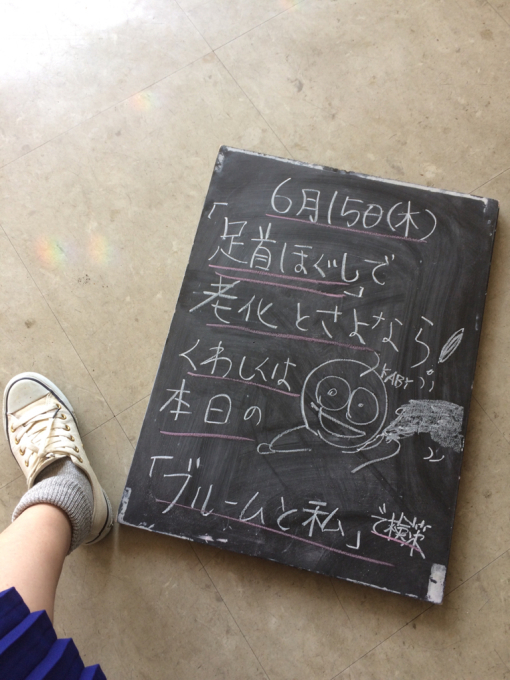 6月15日(木)
「足首ほぐし」で
老化とさよなら!
くわしくは
本日の
「ブルームと私」で検索